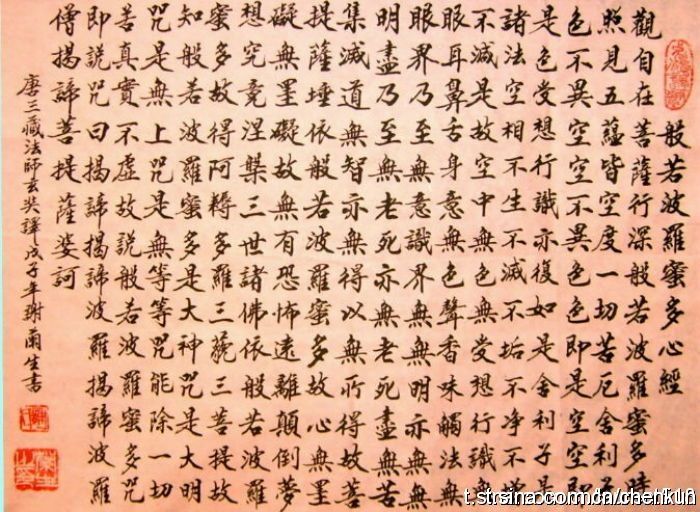 般若波羅蜜多心經
觀自在菩薩行深般若波羅蜜多時
照見五蘊皆空度一切苦厄舍利子
色不異空空不異色色即是空空即
是色受想行識亦復如是舍利子是
諸法空相不生不滅不垢不净不增
不減是故空中無色無受想行識無
眼耳鼻舌身意無色聲香味觸法無
眼界乃至無意識界無無明亦無無
明盡乃至無老死亦無老死盡無苦
集滅道無智亦無得以無所得故菩
提薩埵依般若波羅蜜多故心無罣
礙無罣礙故無有恐怖遠離顛倒夢
想究竟涅槃三世諸佛依般若波羅
蜜多故得阿耨多羅三藐三菩提故
知般若波羅蜜多是大神咒是大明
咒是無上咒是無等等咒能除一切
苦真實不虛故說般若波羅蜜多咒
即說咒曰揭諦揭諦波羅揭諦波羅
僧揭諦菩提薩婆訶
唐三藏法師玄奘譯戊子年謝爾生書